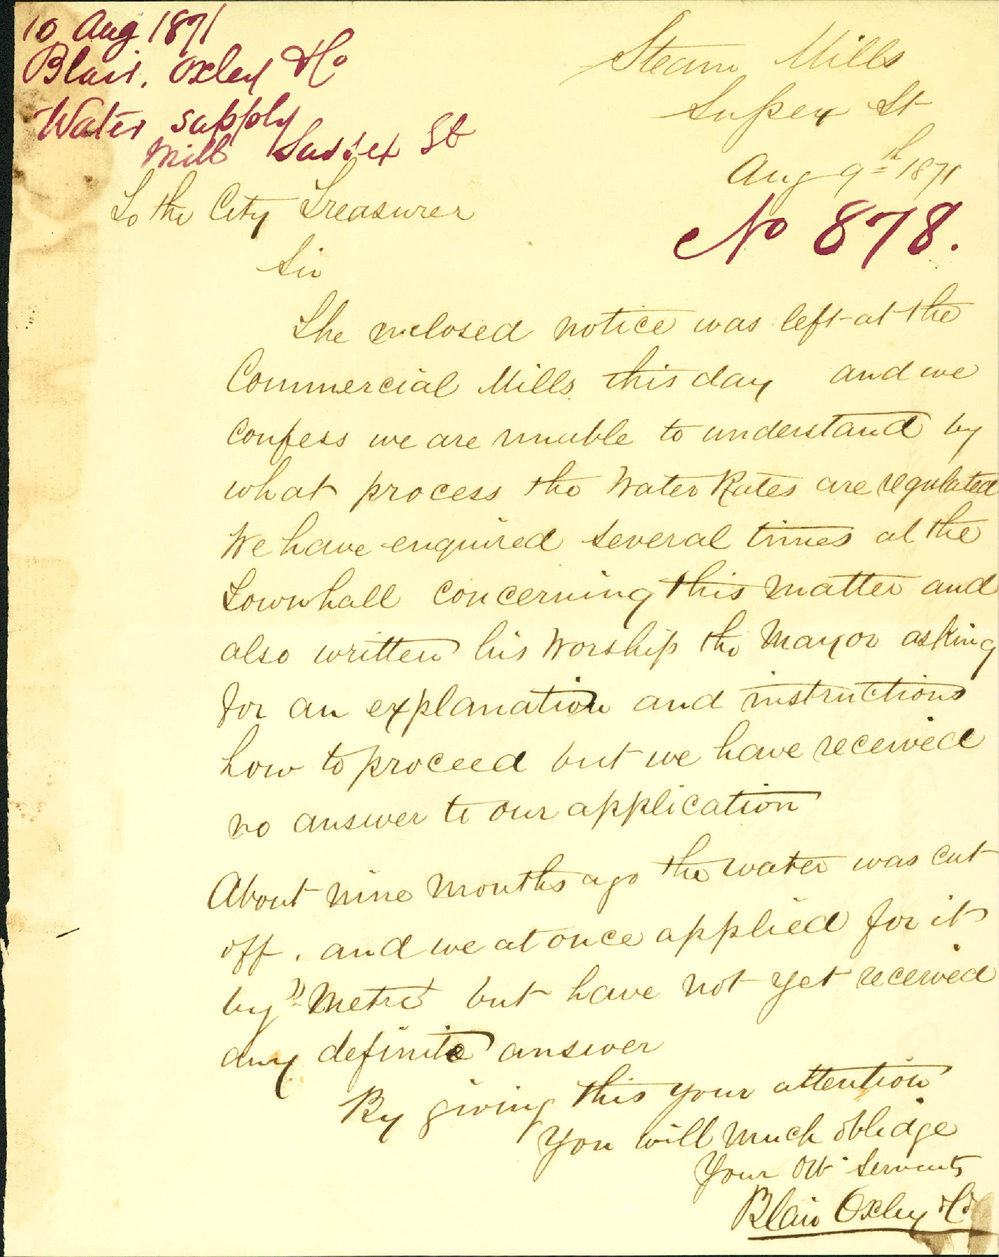 10 Aug 1871
Blair, Oxley & Co
Water supply
Mill Sussex St
Steam Mills
Sussex St
Aug 9th 1871
No 878.
To the City Treasurer
Sir
The enclosed notice was left at the
Commercial Mills this day and we
confess we are unable to understand by
what process the Water Rates are regulated
We have enquired several times at the
Townhall concerning this matter and
also written his Worship the Mayor asking
for an explanation and instructions
how to proceed but we have received
no answer to our application
About nine months ago the water was cut
off. and we at once applied for it
by "Metre" but have not yet received
any definite answer
By giving this your attention
You will much oblidge
Your Obt Servants
Blair Oxley & Co